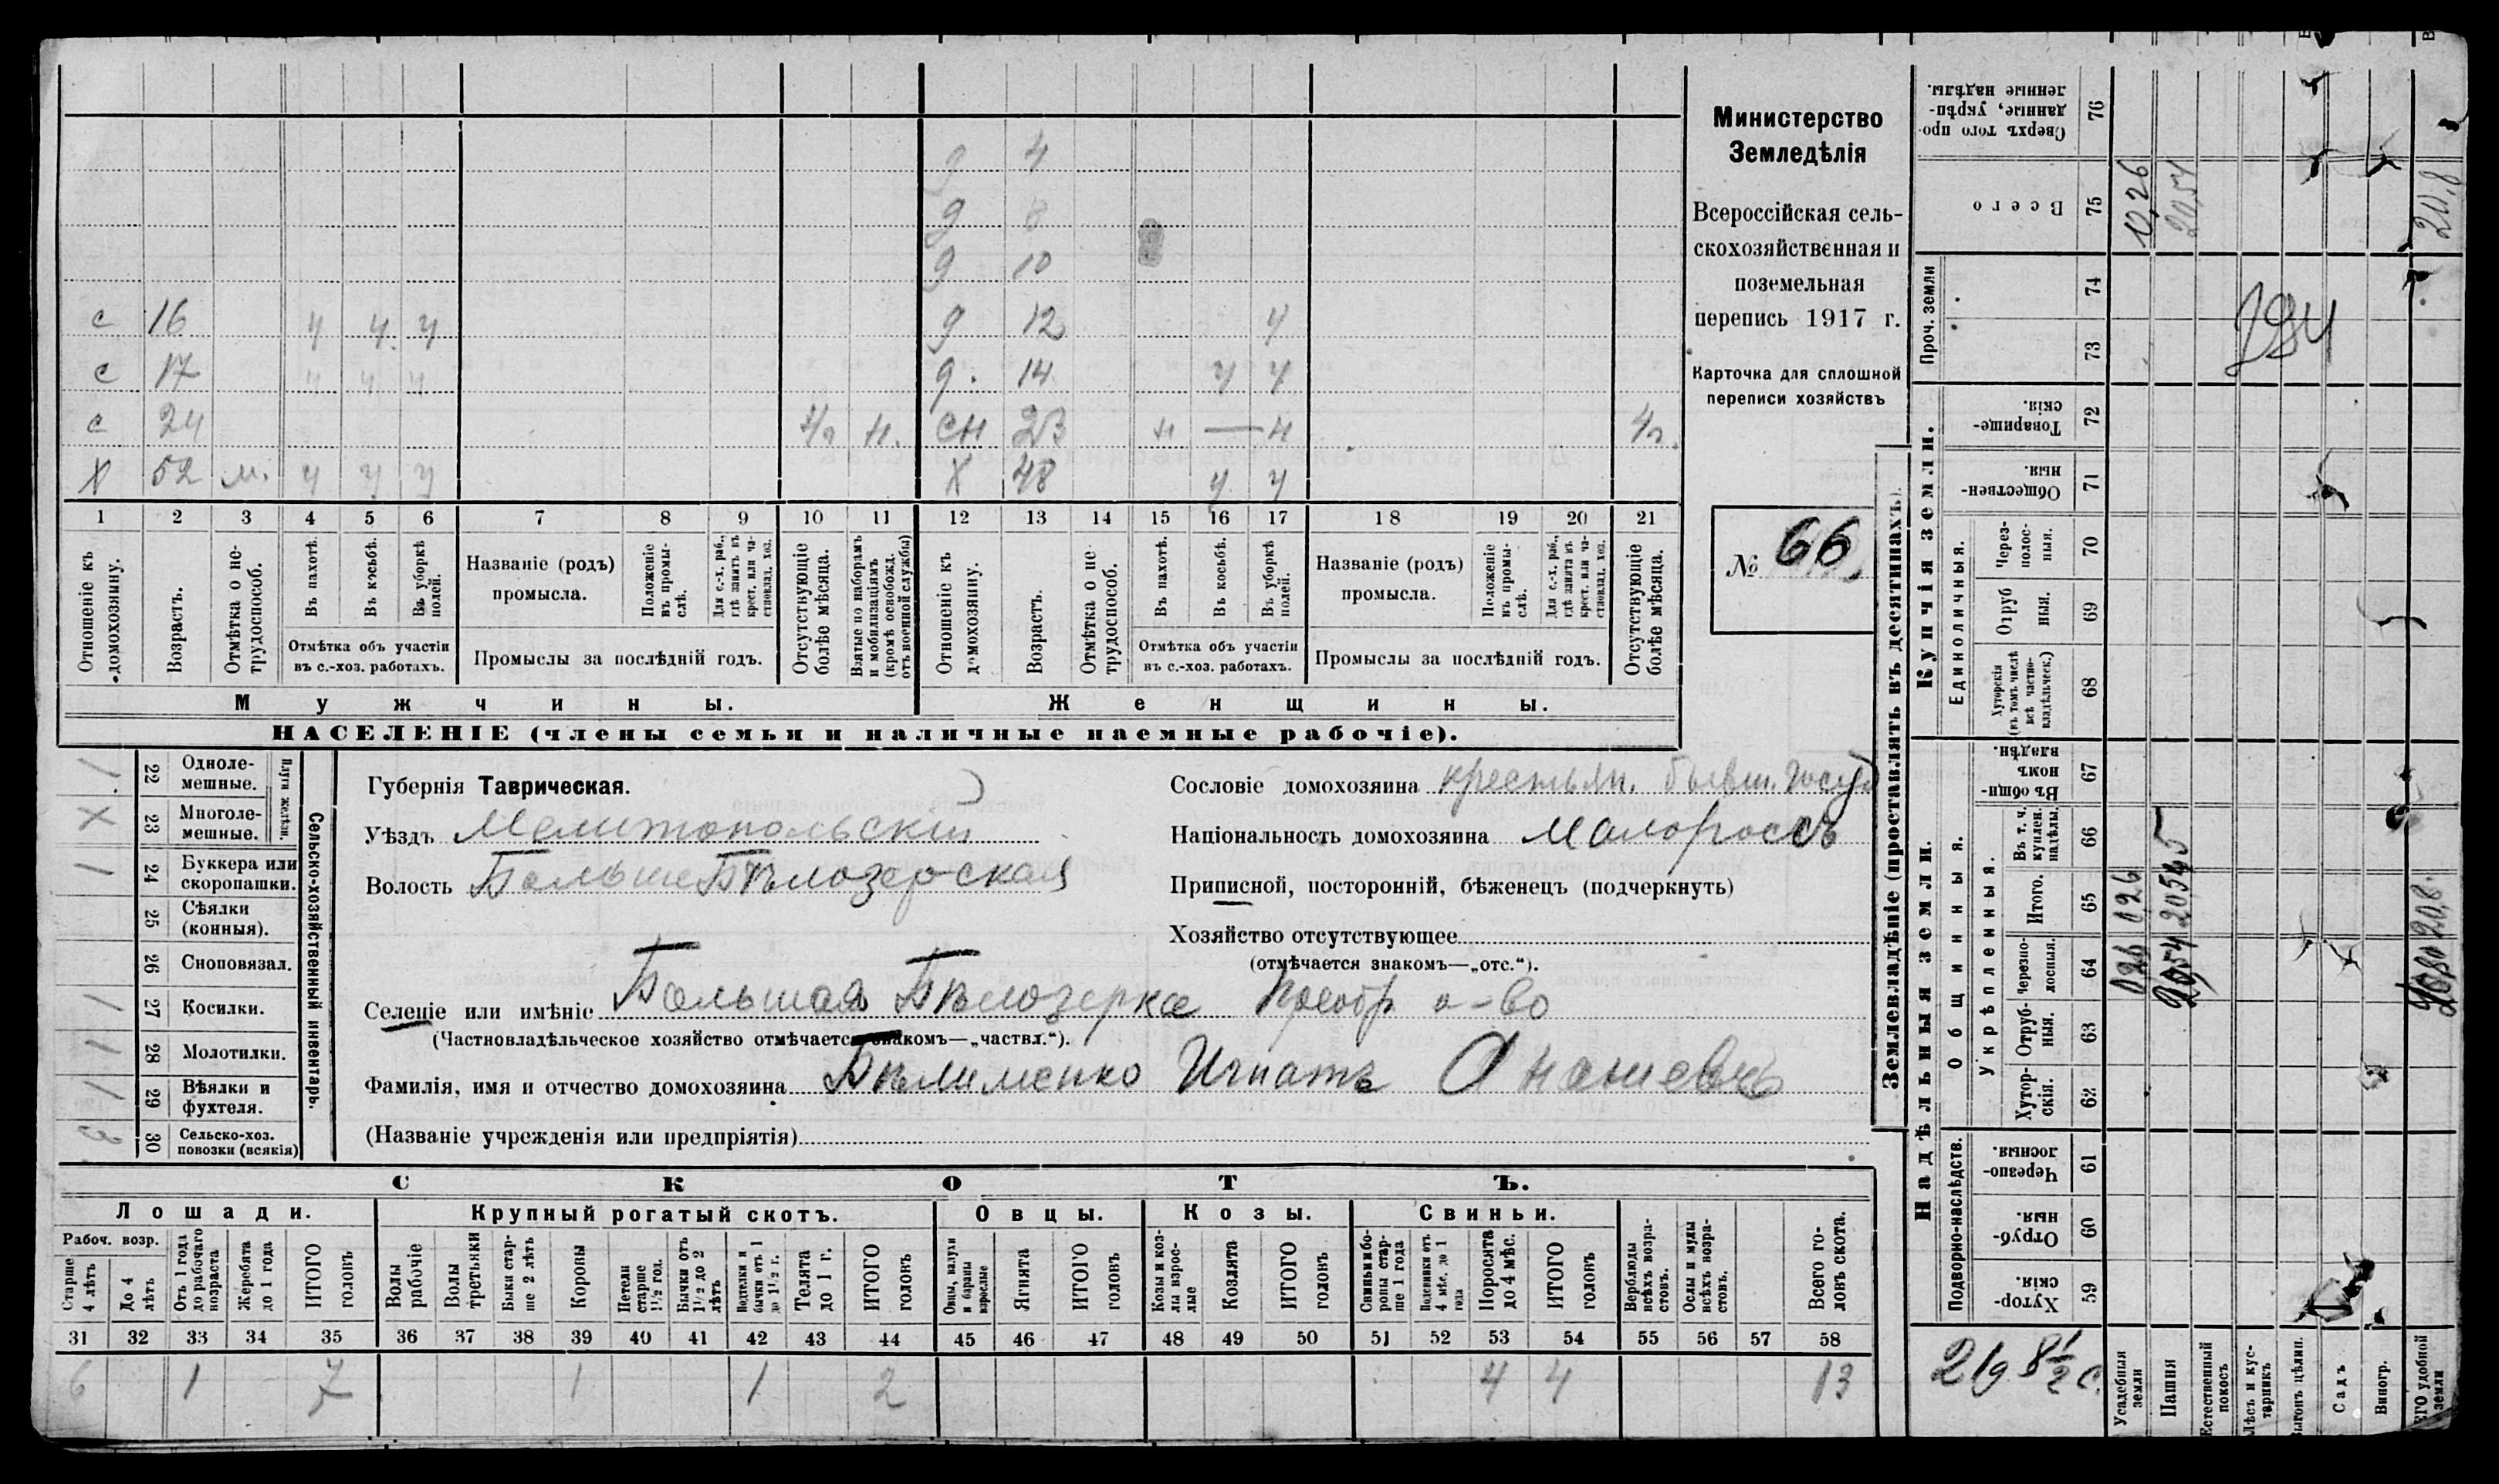 9 4
9 8
9 10
с 16 ч ч ч 9 12 ч
с 17 ч ч ч 9. 14 ч ч
с 24 н. сн 23 н — н
Х 52 м. ч ч ч Х 48 ч ч
1 2 3 4 5 6 7 8 9 10 11 12 13 14 15 16 17 18 19 20 21
Отношеніе къ домохозяину.
Возрастъ.
Отмѣтка о не-трудоспособ.
Въ пахотѣ.
Въ косьбѣ.
Въ уборкѣ полей.
Отмѣтка объ участіи
въ с.-хоз. работахъ.
Названіе (родъ)
промысла.
Положеніе въ промы-слѣ.
Для с.-х. раб., гдѣ занятъ въ крест. или ча-стновлад. хоз.
Промыслы за послѣдній годъ.
Отсутствующіе болѣе мѣсяца.
Взятые по наборамъ и мобилизаціямъ (кромѣ освобожд. отъ военной службы)
Отношеніе къ домохозяину.
Возрастъ.
Отмѣтка о не трудоспособ.
Въ пахотѣ.
Въ косьбѣ.
Въ уборкѣ полей.
Отмѣтка объ участіи
въ с.-хоз. работахъ.
Названіе (родъ)
промысла.
Положеніе въ промы-слѣ.
Для с.-х. раб., гдѣ занята въ крест. или ча-стновлад. хоз.
Промыслы за послѣдній годъ.
Отсутствующіе болѣе мѣсяца.
Мужчины. Женщины.
НАСЕЛЕНІЕ (члены семьи и наличные наемные рабочіе).
Министерство
Земледѣлія
Всероссійская сель-
скохозяйственная и
поземельная
перепись 1917 г.
Карточка для сплошной
переписи хозяйствъ
№ 66
Сельско-хозяйственный инвентарь.
Плуги желѣзн.
1 22 Однолемешные.
Х 23 Многолемешные.
1 24 Буккера или скоропашки.
25 Сѣялки (конныя).
26 Сноповязал.
1 27 Косилки.
1 28 Молотилки.
1 29 Вѣялки и фухтеля.
3 30 Сельско-хоз. повозки (всякія)
Губернія Таврическая.
Уѣздъ Мелитопольскій
Волость Больше Бѣлозерская
Сословіе домохозяина крестьян. бывш. госуд
Національность домохозяина Малороссъ
Приписной, посторонній, бѣженецъ (подчеркнуть)
Хозяйство отсутствующее
(отмѣчается знакомъ—„отс.“).
Селеніе или имѣніе Большая Бѣлозерка Преобр о-во
(Частновладѣльческое хозяйство отмѣчается знакомъ—„частвл.“).
Фамилія, имя и отчество домохозяина Бѣлименко Игнатъ Ананіевъ
(Названіе учрежденія или предпріятія)
СКОТЪ.
Лошади. Крупный рогатый скотъ. Овцы. Козы. Свиньи.
Рабоч. возр.
Старше 4 лѣтъ
До 4 лѣтъ
Отъ 1 года до рабочаго возраста
Жеребята до 1 года
ИТОГО головъ
Волы рабочіе
Волы третьяки
Быки старше 2 лѣтъ
Коровы
Нетели старше 1½ год.
Бычки отъ 1½ до 2 лѣтъ
Подтелки и бычки отъ 1 до 1½ г.
Телята до 1 г.
ИТОГО головъ
Овцы, валухи и бараны взрослые
Ягнята
ИТОГО головъ
Козы и козлы взрослые
Козлята
ИТОГО головъ
Свиньи и боровы старше 1 года
Подсвинки отъ 4 мѣс. до 1 года
Поросята до 4 мѣс.
ИТОГО головъ
Верблюды всѣхъ возрастовъ.
Ослы и мулы всѣхъ возрастовъ.
Всего головъ скота.
31 32 33 34 35 36 37 38 39 40 41 42 43 44 45 46 47 48 49 50 51 52 53 54 55 56 57 58
6 1 7 1 1 2 4 4 13
Землевладѣніе (проставлять въ десятинахъ).
Купчія земли.
Надѣльныя земли.
Сверхъ того проданные, укрѣпленные надѣлы. 76
Всего 75 0,26 20,54 20,8
Проч. земли 74 73
194
Товарищескія. 72
Общественныя. 71
Единоличныя.
Черезполосныя. 70
Отрубныя. 69
Хуторскія (въ томъ числѣ всѣ частновладѣльческ.) 68
Общинныя.
Въ общинномъ владѣн. 67
Укрѣпленныя.
Въ т. ч. куплен. надѣлы. 66
Итого. 65 0,26 20,54 20,8.
Черезполосныя. 64 0,26 20,54
Отрубныя. 63
Хуторскія. 62
Подворно-наслѣдств.
Черезполосныя. 61
Отрубныя 60
Хуторскія. 59
219 8½ с.
Усадебныя земли
Пашня
Естественный покосъ
Лѣсъ и кустарникъ
Выгонъ цѣлин.
Садъ
Виногр.
ЕГО удобной земли